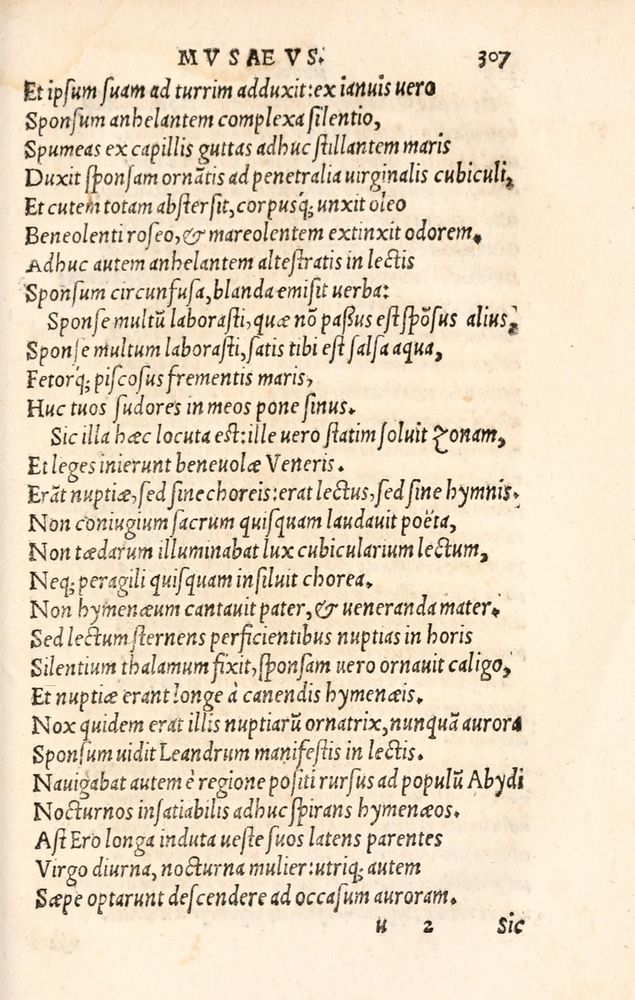 MVSAEVS. 307
Et ipsum suam ad turrim adduxit: ex ianuis uero
Sponsum anhelantem complexa silentio,
Spumeas ex capillis guttas adhuc stillantem maris
Duxit sponsam ornãtis ad penetralia uirginalis cubiculi,
Et cutem totam abstersit, corpusq; unxit oleo
Beneolenti roseo, & mareolentem extinxit odorem.
Adhuc autem anhelantem altestratis in lectis
Sponsum circunfusa, blanda emisit uerba:
Sponse multũ laborasti, quæ nõ paßus est spõsus alius,
Sponse multum laborasti, satis tibi est salsa aqua,
Fetorq; piscosus frementis maris,
Huc tuos sudores in meos pone sinus.
Sic illa hæc locuta est: ille uero statim soluit zonam,
Et leges inierunt beneuolæ Veneris.
Erãt nuptiæ, sed sine choreis: erat lectus, sed sine hymnis.
Non coniugium sacrum quisquam laudauit poëta,
Non tædarum illuminabat lux cubicularium lectum,
Neq; peragili quisquam insiluit chorea.
Non hymenæum cantauit pater, & ueneranda mater.
Sed lectum sternens perficientibus nuptias in horis
Silentium thalamum fixit, sponsam uero ornauit caligo,
Et nuptiæ erant longe à canendis hymenæis.
Nox quidem erat illis nuptiarũ ornatrix, nunquã aurora
Sponsum uidit Leandrum manifestis in lectis.
Nauigabat autem è regione positi rursus ad populũ Abydi
Nocturnos insatiabilis adhuc spirans hymenæos.
Ast Ero longa induta ueste suos latens parentes
Virgo diurna, nocturna mulier: utriq; autem
Sæpe optarunt descendere ad occasum auroram.
u 2 Sic